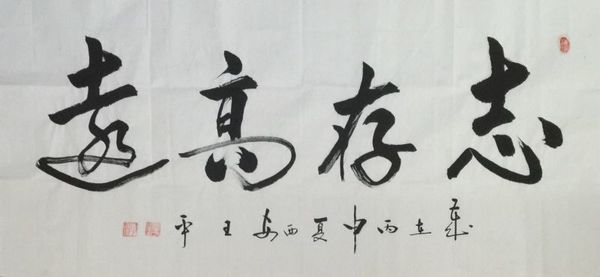 志存高遠
歲在丙申夏西安王平